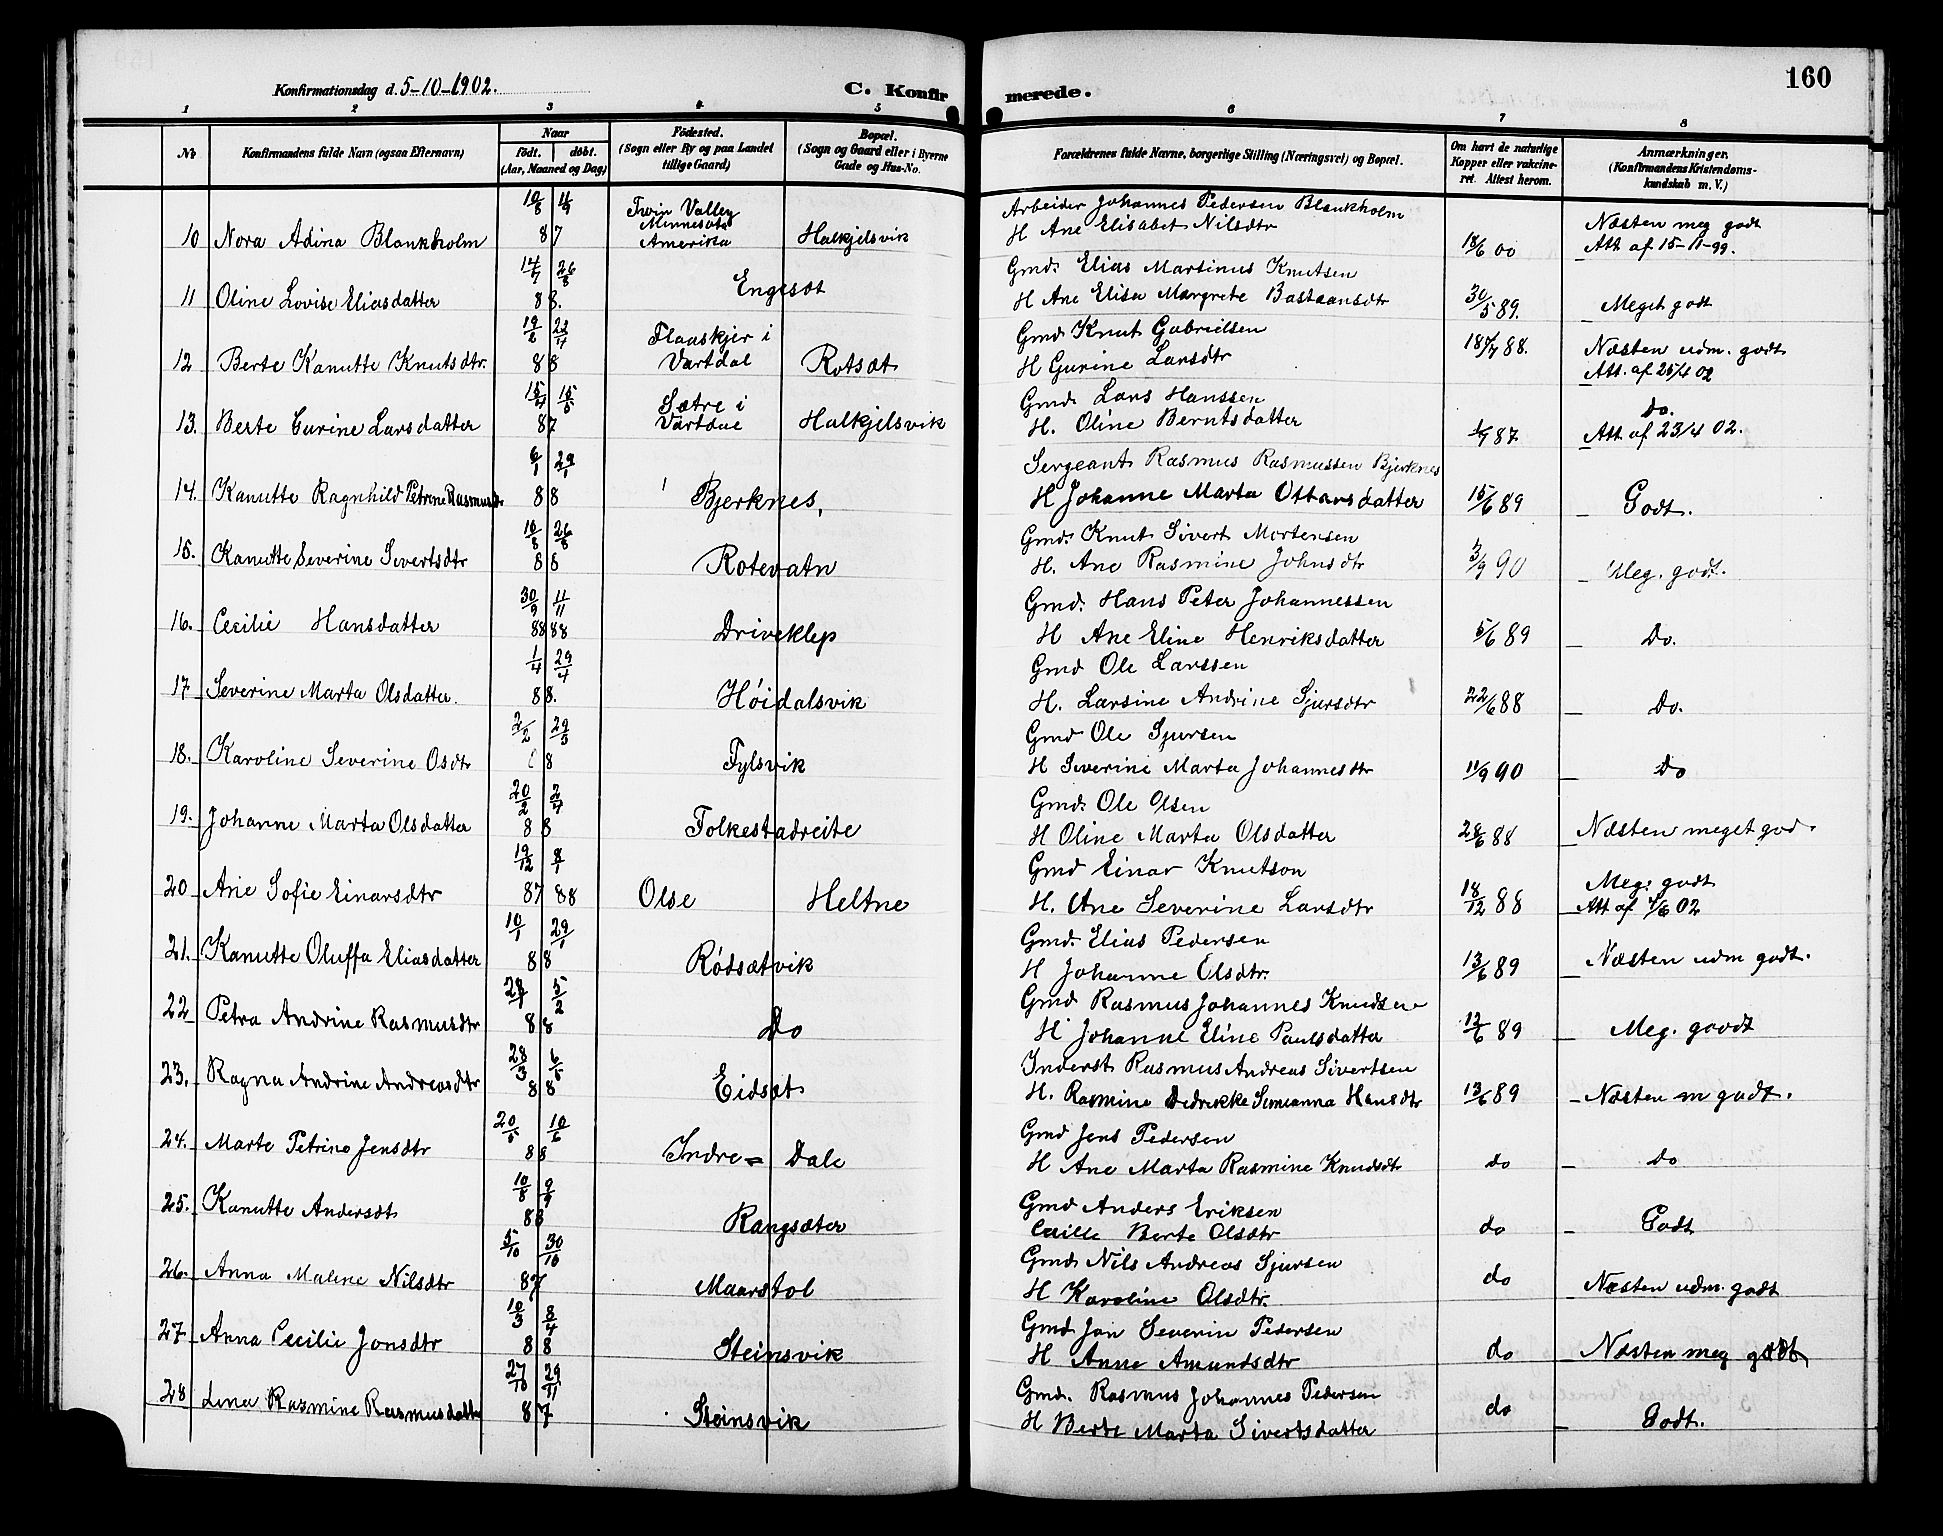 Konfirmationsdag d. 5-10-1902.
C. Konfirmerede.
160
1 2 3 4 5 6 7 8
No
Konfirmandens fulde Navn (ogsaa Efternavn)
Naar
født. døbt.
(Aar, Maaned og Dag)
Fødested.
(Sogn eller By og paa Landet
tillige Gaard)
Bopæl.
(Sogn og Gaard eller i Byerne
Gade og Hus-No.
Forældrenes fulde Navne, borgerlige Stilling (Næringsvei) og Bopæl.
Om havt de naturlige
Kopper eller vakcine-
ret. Attest herom.
Anmærkninger.
(Konfirmandens Kristendoms-
kundskab m. V.)
10 Nora Adina Blankholm 10/8 11/9 87 Twin Valley Minnesota Amerika Halkjelsvik
Arbeider Johannes Pedersen Blankholm
H Ane Elisabet Nilsdtr 18/6 00 Næsten meg godt
Att. af 15-11-99.
11 Oline Lovise Eliasdatter 14/7 26/8 88. Engesæt
Gmd. Elias Martinus Knutsen
H Ane Elisa Margrete Bastiansdtr 30/5 89. Meget godt
12 Berte Kanutte Knutsdtr. 19/2 22/4 88 Flaaskjer i Vartdal Rotsæt
Gmd Knut Gabrielsen
H Gurine Larsdtr 18/7 88. Næsten udm. godt
Att. af 25/4 02
13. Berte Gurine Larsdatter 15/4 15/5 87 Sætre i Vartdal Halkjelsvik
Gmd. Lars Hanssen
H. Oline Berntsdatter 1/7 87 do.
Att. af 23/4 02.
14. Kanutte Ragnhild Petrine Rasmusdtr 6/1 29/1 88 Bjerknes,
Sergeant Rasmus Rasmussen Bjerknes
H Johanne Marta Ottarsdatter 15/6 89 Godt.
15. Kanutte Severine Sivertsdtr 10/8 26/8 88 Rotevatn
Gmd. Knut Sivert Mortensen
H. Ane Rasmine Johnsdtr 3/9 90 Meg. godt.
16. Cecilie Hansdatter 30/9 11/11 88 88 Driveklep
Gmd. Hans Peter Johannessen
H Ane Eline Henriksdatter 5/6 89 Do.
17 Severine Marta Olsdatter. 1/4 29/4 88. Høidalsvik
Gmd Ole Larssen
H. Larsine Andrine Sjursdtr 22/6 88 Do.
18. Karoline Severine Osdtr 2/2 29/3 88 Fylsvik
Gmd Ole Sjursen
H Siverine Marta Johannesdtr 11/9 90 Do
19. Johanne Marta Olsdatter 20/2 2/4 88 Folkestadreite
Gmd. Ole Olsen
H Oline Marta Olsdatter 28/6 88 Næsten meget god.
20 Ane Sofie Einarsdtr 19/12 8/1 87 88 Olse Heltne
Gmd Einar Knutson
H. Ane Severine Larsdtr 18/12 88 Meg. godt
Att af 7/6 02
21. Kanutte Oluffa Eliasdatter 10/1 29/1 88 Rødsætvik
Gmd. Elias Pedersen
H Johanne Olsdtr. 13/6 89 Næsten udm godt.
22 Petra Andrine Rasmusdtr 5/2 88 Do
Gmd Rasmus Johannes Knudsen
H Johanne Eline Paulsdatter 12/6 89 Meg. goodt
23. Ragna Andrine Andreasdtr 28/3 6/5 88 Eidsæt
Inderst Rasmus Andreas Sivertsen
H. Rasmine Didrikke Simianna Hansdtr 13/6 89 Næsten m godt.
24. Marte Petrine Jensdtr 20/5 10/6 88 Indre- Dale
Gmd Jens Pedersen
H Ane Marta Rasmine Knudsdtr do do
25. Kanutte Andersdt 10/8 9/9 88 Rangsæter
Gmd Anders Eriksen
Berte Olsdtr do Godt
26. Anna Maline Nilsdtr 5/10 30/10 87 Maarstol
Gmd. Nils Andreas Sjursen
H Karoline Olsdtr. do Næsten udm. godt
27 Anna Cecilie Jonsdtr 10/3 8/4 88 Steinsvik
Gmd Jon Severin Pedersen
H Anne Amundsdtr do Næsten meg godt
28 Lena Rasmine Rasmusdatter 27/10 29/11 87 Steinsvik
Gmd. Rasmus Johannes Pedersen
H Berte Marta Sivertsdatter do Godt.